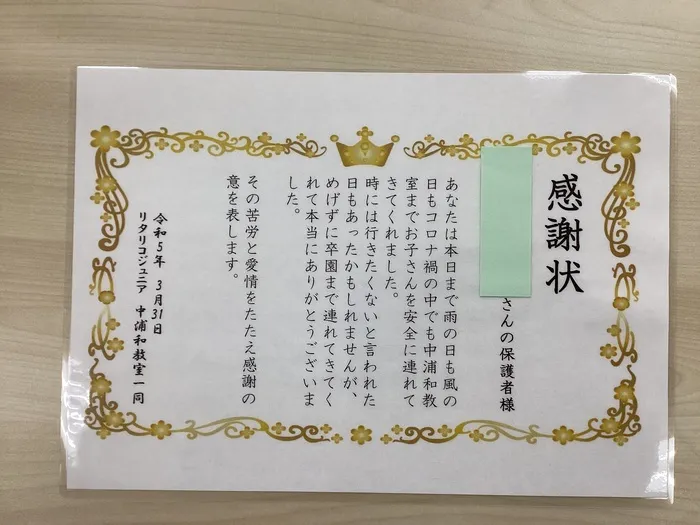 感謝状
さんの保護者様
あなたは本日まで雨の日も風の
日もコロナ禍の中でも中浦和教
室までお子さんを安全に連れて
きてくれました。
時には行きたくないと言われた
日もあったかもしれませんが、
めげずに卒園まで連れてきてく
れて本当にありがとうございま
した。
その苦労と愛情をたたえ感謝の
意を表します。
令和5年 3月31日
リタリコジュニア 中浦和教室一同